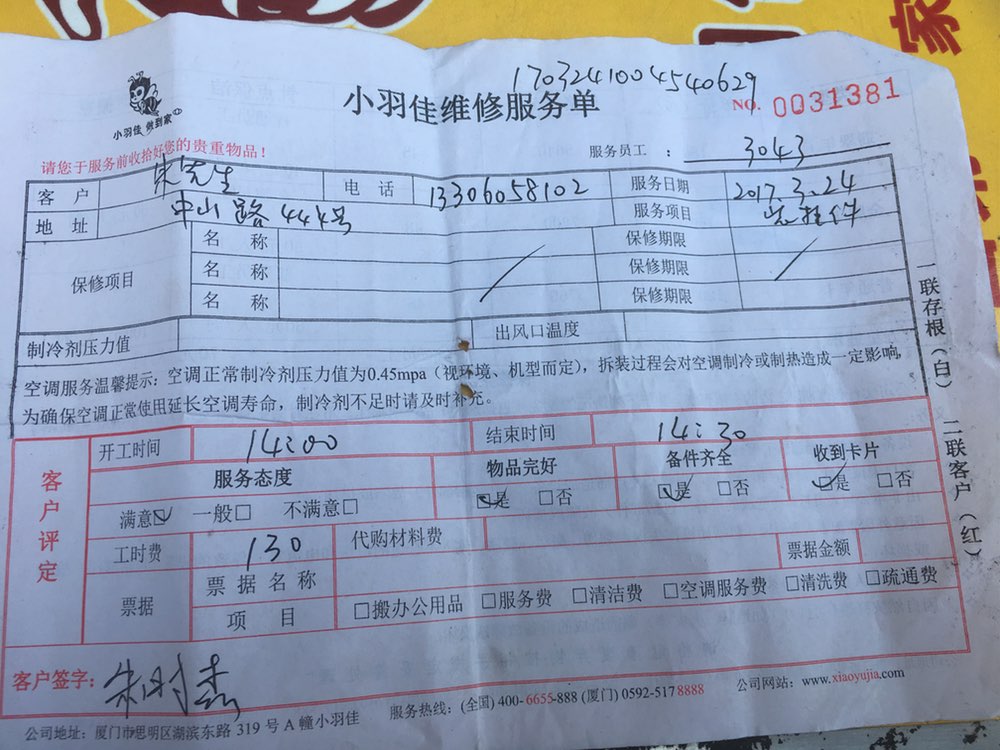 家
1703241004540629
小羽佳 做到家
小羽佳维修服务单
NO. 0031381
请您于服务前收拾好您的贵重物品！
服务员工 ： 3043
客 户 朱先生 电 话 13306058102 服务日期 2017.3.24
地 址 中山路444号 服务项目 挂件
保修项目
名 称 保修期限
名 称 保修期限
名 称 保修期限
制冷剂压力值 出风口温度
空调服务温馨提示：空调正常制冷剂压力值为0.45mpa（视环境、机型而定），拆装过程会对空调制冷或制热造成一定影响，
为确保空调正常使用延长空调寿命，制冷剂不足时请及时补充。
客户评定
开工时间 14:00 结束时间 14:30
服务态度 物品完好 备件齐全 收到卡片
满意☑ 一般□ 不满意□ ☑是 □否 ☑是 □否 ☑是 □否
工时费 130 代购材料费 票据金额
票据 票据名称
项 目 □搬办公用品 □服务费 □清洁费 □空调服务费 □清洗费 □疏通费
客户签字： 朱时杰
公司地址：厦门市思明区湖滨东路319号A幢小羽佳 服务热线：(全国) 400-6655-888 (厦门) 0592-5178888 公司网站：www.xiaoyujia.com
一联存根（白） 二联客户（红）